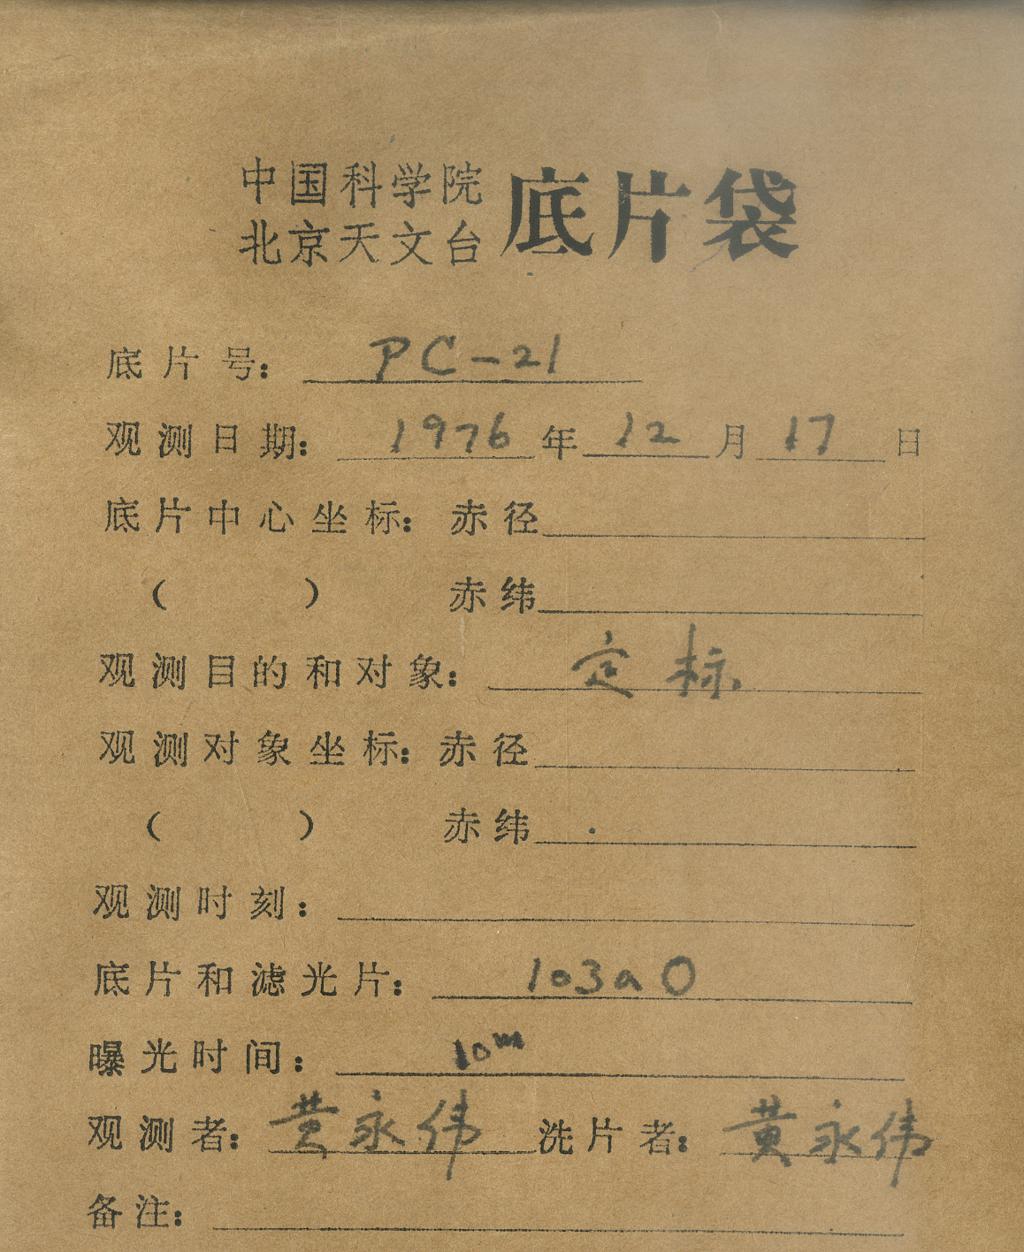 中国科学院
北京天文台
底片袋
底片号: PC-21
观测日期: 1976年12月17日
底片中心坐标: 赤径
( ) 赤纬
观测目的和对象: 定标
观测对象坐标: 赤径
( ) 赤纬
观测时刻:
底片和滤光片: 103aO
曝光时间: 10m
观测者: 黄永伟 洗片者: 黄永伟
备注: